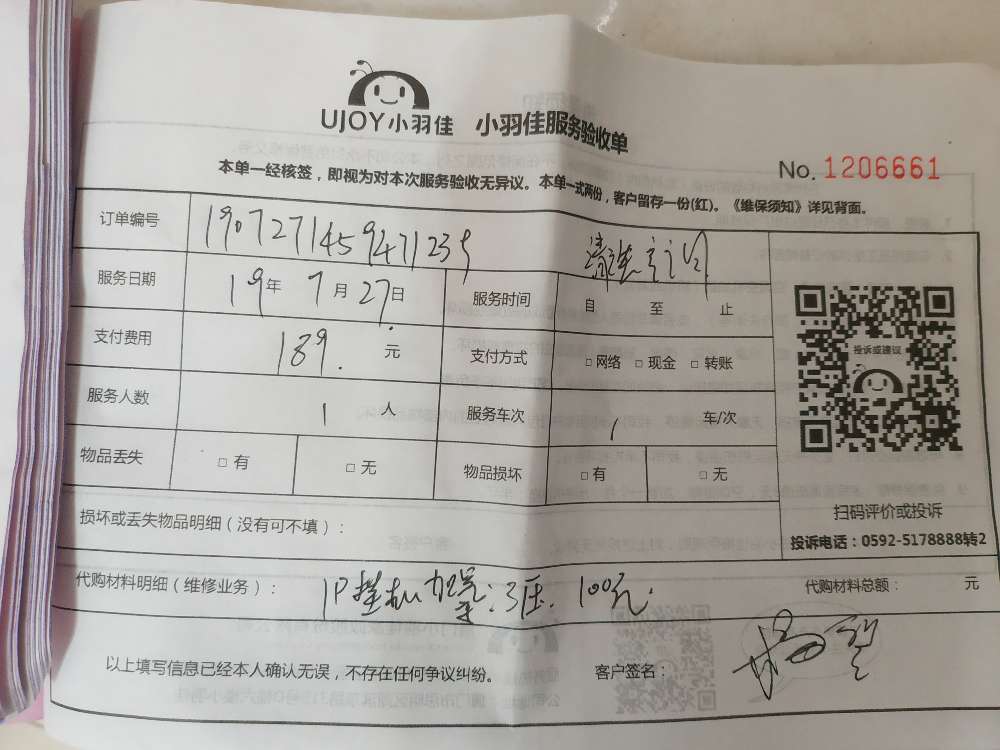 UJOY小羽佳 小羽佳服务验收单
No. 1206661
本单一经核签，即视为对本次服务验收无异议。本单一式两份，客户留存一份(红)。《维保须知》详见背面。
订单编号 190727145947123
服务日期 19年 7月 27日 服务时间 自 至 止
支付费用 189. 元 支付方式 □网络 □现金 □转账
投诉或建议
服务人数 1 人 服务车次 1 车/次
物品丢失 □有 □无 物品损坏 □有 □无
损坏或丢失物品明细（没有可不填）：
扫码评价或投诉
投诉电话：0592-5178888转2
代购材料明细（维修业务）： 1P挂机加氟：3压. 100元. 代购材料总额： 元
以上填写信息已经本人确认无误，不存在任何争议纠纷。 客户签名：